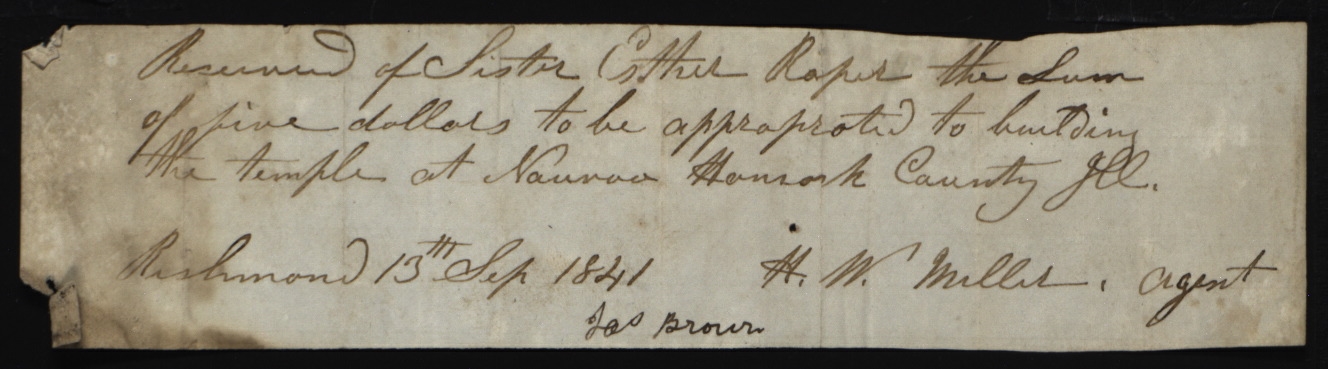 Received of Sister Esther Roper the Sum
of five dollars to be approproted to building
the temple at Nauvoo Hancock County Ill.
Richmond 13th Sep 1841 H. W. Miller. agent
Jas Brown